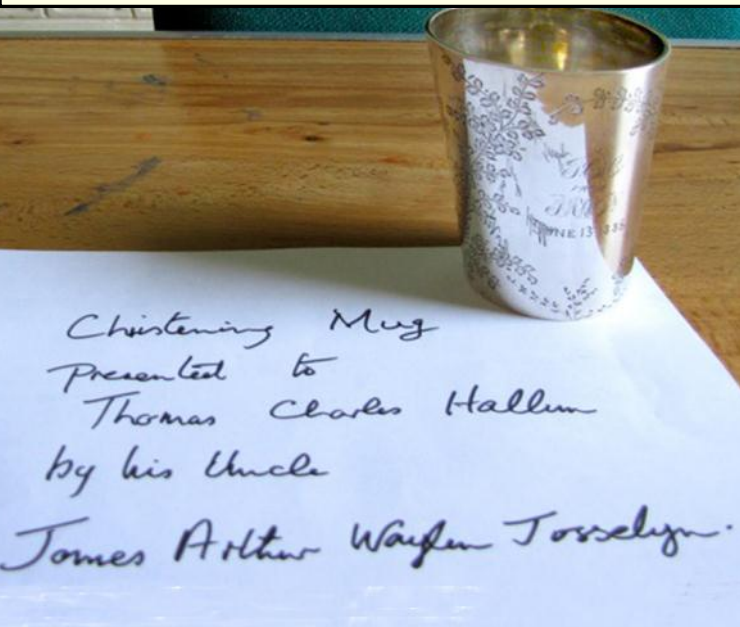 JUNE 13 188
Christening Mug
Presented to
Thomas Charles Hallum
by his Uncle
James Arthur Josselyn.